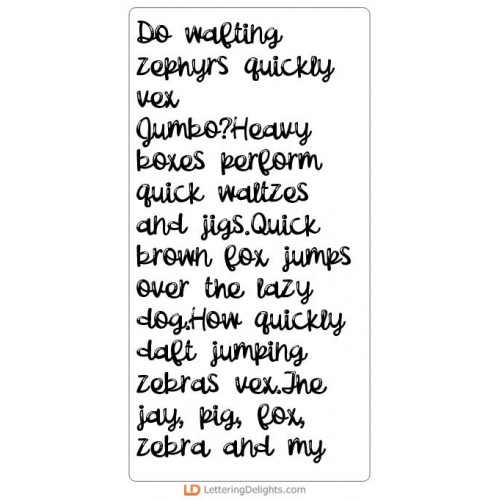 Do wafting
zephyrs quickly
vex
Jumbo?Heavy
boxes perform
quick waltzes
and jigs.Quick
brown fox jumps
over the lazy
dog.How quickly
daft jumping
zebras vex.The
jay, pig, fox,
zebra and my
LD LetteringDelights.com